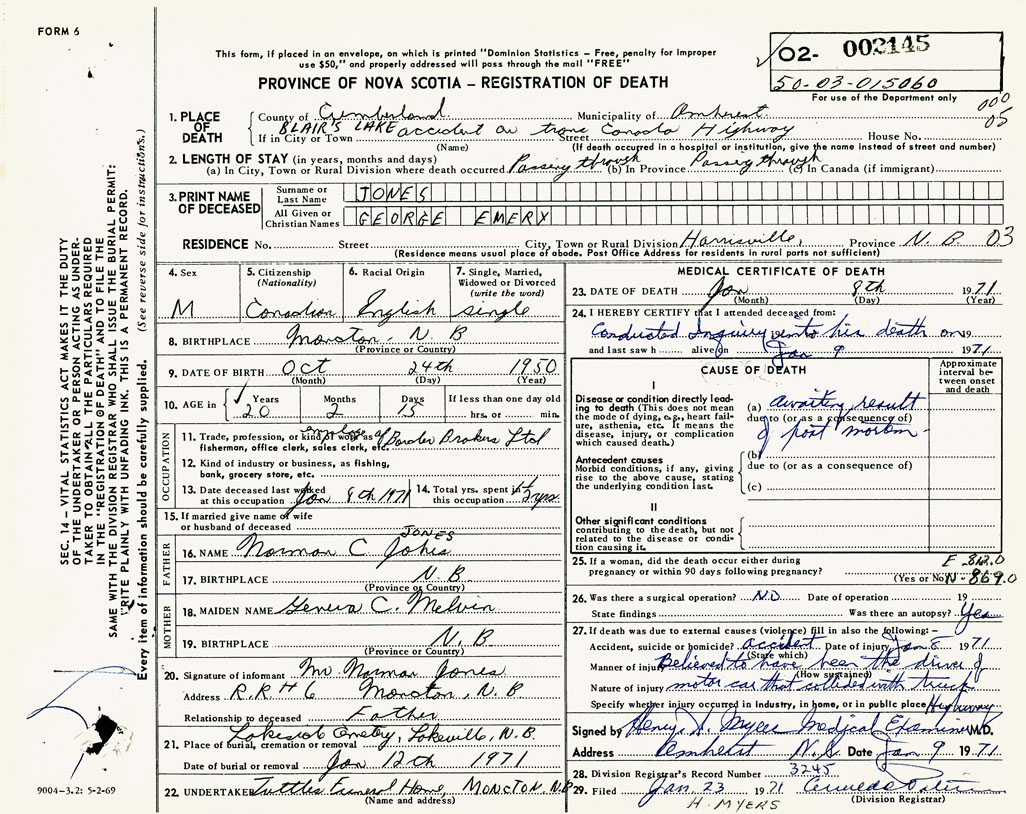 FORM 6
This form, if placed in an envelope, on which is printed "Dominion Statistics – Free, penalty for improper
use $50," and properly addressed will pass through the mail "FREE"
PROVINCE OF NOVA SCOTIA – REGISTRATION OF DEATH
O2- 002145
50-03-015060
For use of the Department only
000
05
SEC. 14 – VITAL STATISTICS ACT MAKES IT THE DUTY
OF THE UNDERTAKER OR PERSON ACTING AS UNDER-
TAKER TO OBTAIN ALL THE PARTICULARS REQUIRED
IN THE "REGISTRATION OF DEATH" AND TO FILE THE
SAME WITH THE DIVISION REGISTRAR WHO SHALL ISSUE THE BURIAL PERMIT:
"RITE PLAINLY WITH UNFADING INK. THIS IS A PERMANENT RECORD.
Every item of information should be carefully supplied. (See reverse side for instructions.)
1. PLACE OF DEATH
County of Cumberland Municipality of Amherst
BLAIR'S LAKE accident on trans Canada Highway
If in City or Town Street House No.
(Name) (If death occurred in a hospital or institution, give the name instead of street and number)
2. LENGTH OF STAY (in years, months and days)
(a) In City, Town or Rural Division where death occurred Passing through (b) In Province Passing through (c) In Canada (if immigrant)
3. PRINT NAME OF DECEASED
Surname or Last Name JONES
All Given or Christian Names GEORGE EMERY
RESIDENCE No. Street City, Town or Rural Division Harrisville, Province N. B. 03
(Residence means usual place of abode. Post Office Address for residents in rural parts not sufficient)
4. Sex
M
5. Citizenship (Nationality)
Canadian
6. Racial Origin
English
7. Single, Married, Widowed or Divorced (write the word)
single
8. BIRTHPLACE Moncton - N. B
(Province or Country)
9. DATE OF BIRTH Oct 24th 1950
(Month) (Day) (Year)
10. AGE in Years 20 Months 2 Days 15 If less than one day old hrs. or min.
OCCUPATION
11. Trade, profession, or kind of work as of Border Brokers Ltd
fisherman, office clerk, sales clerk, etc.
12. Kind of industry or business, as fishing,
bank, grocery store, etc.
13. Date deceased last worked at this occupation Jan 8th 1971
14. Total yrs. spent in this occupation 2 yrs.
15. If married give name of wife
or husband of deceased
FATHER
JONES
16. NAME Norman C. Jones
17. BIRTHPLACE N. B
(Province or Country)
MOTHER
18. MAIDEN NAME Geneva C. Melvin
19. BIRTHPLACE N. B
(Province or Country)
20. Signature of informant Mr. Norman Jones
Address R. R # 6 Moncton, N. B
Relationship to deceased Father
Lakeville, N. B.
21. Place of burial, cremation or removal
Date of burial or removal Jan 12th 1971
22. UNDERTAKER Tuttles Funeral Home, MONCTON, N.B
(Name and address)
9004–3.2: 5-2-69
MEDICAL CERTIFICATE OF DEATH
23. DATE OF DEATH Jan 8th 1971
(Month) (Day) (Year)
24. I HEREBY CERTIFY that I attended deceased from:
Conducted Inquiry 19 into his death on 19
and last saw h alive on Jan 9 1971
CAUSE OF DEATH
Approximate interval between onset and death
I
Disease or condition directly leading to death (This does not mean the mode of dying, e.g., heart failure, asthenia, etc. It means the disease, injury, or complication which caused death.)
(a) awaiting result
due to (or as a consequence of)
of post mortem -
Antecedent causes
Morbid conditions, if any, giving rise to the above cause, stating the underlying condition last.
(b)
due to (or as a consequence of)
(c)
II
Other significant conditions
contributing to the death, but not related to the disease or condition causing it.
25. If a woman, did the death occur either during
pregnancy or within 90 days following pregnancy?
(Yes or No)
E-812.0
N-869.0
26. Was there a surgical operation? NO Date of operation 19
State findings Was there an autopsy? Yes
27. If death was due to external causes (violence) fill in also the following: –
Accident, suicide or homicide? accident Date of injury Jan 8 1971
(State which)
Manner of injury Believed to have been the driver of
(How sustained)
Nature of injury motor car that collided with truck
Specify whether injury occurred in industry, in home, or in public place Highway
Signed by Henry A. Myers Medical Examiner M.D.
Address Amherst N.S. Date Jan 9 1971
28. Division Registrar's Record Number 3245
29. Filed Jan. 23 1971
(Division Registrar)
H. MYERS